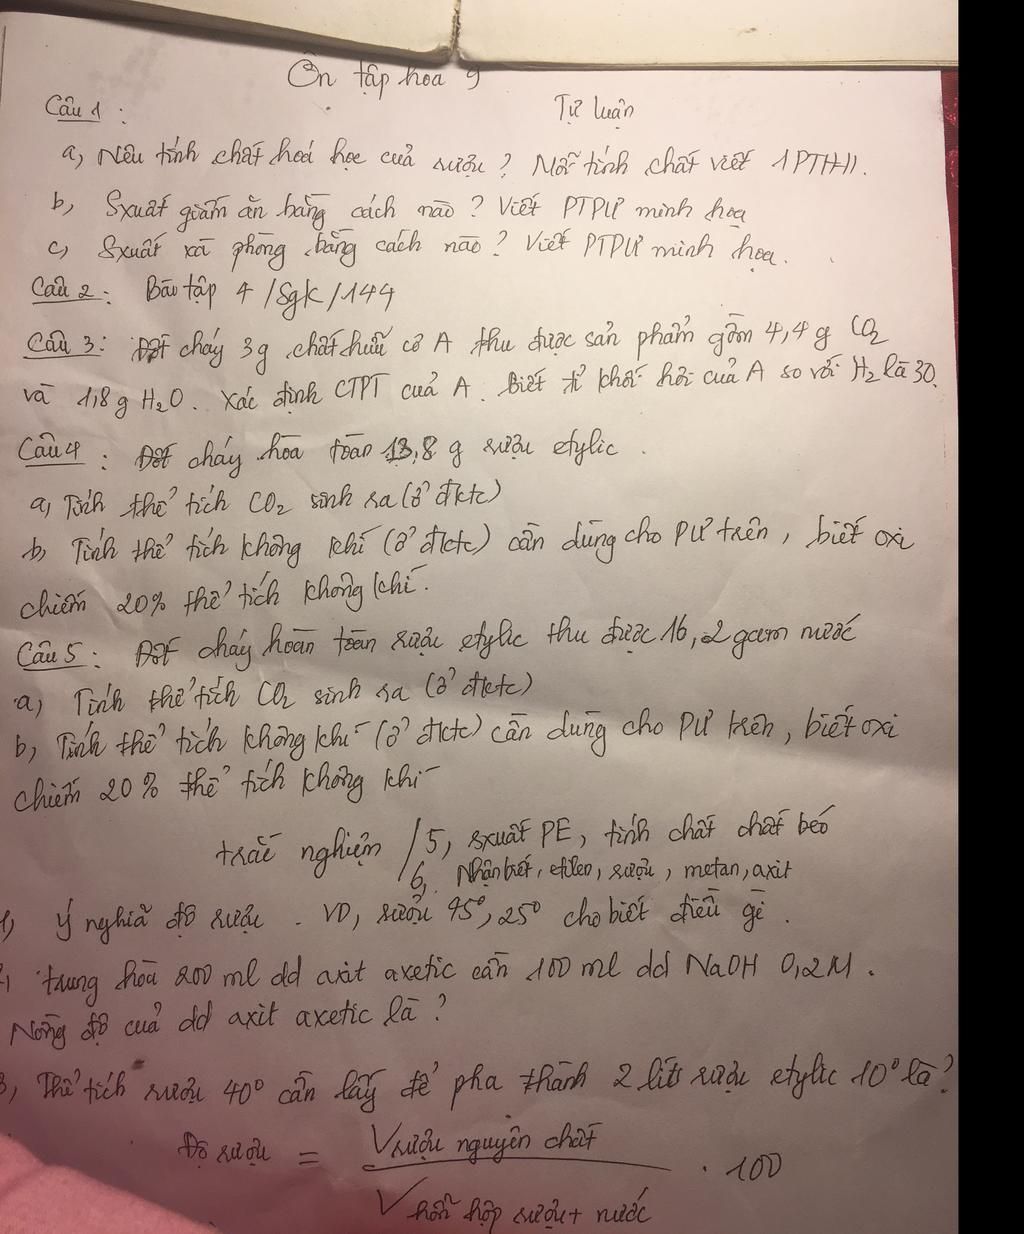 Ôn tập hóa 9
Câu 1 :
Tự luận
a, Nêu tính chất hoá học của rượu ? Mỗi tính chất viết 1 PTHH.
b, Sxuất giấm ăn bằng cách nào ? Viết PTPƯ minh họa
c, Sxuất xà phòng bằng cách nào ? Viết PTPƯ minh họa.
Câu 2 : Bài tập 4 /Sgk/144
Câu 3 : Đốt cháy 3g chất hữu cơ A thu được sản phẩm gồm 4,4 g CO2
và 1,8 g H2O. Xác định CTPT của A. Biết tỉ khối hơi của A so với H2 là 30.
Câu 4 : Đốt cháy hoàn toàn 13,8 g rượu etylic .
a, Tính thể tích CO2 sinh ra (ở đktc)
b, Tính thể tích không khí (ở đktc) cần dùng cho PƯ trên, biết oxi
chiếm 20% thể tích không khí.
Câu 5 : Đốt cháy hoàn toàn rượu etylic thu được 16,2 gam nước
a, Tính thể tích CO2 sinh ra (ở đktc)
b, Tính thể tích không khí (ở đktc) cần dùng cho PƯ trên, biết oxi
chiếm 20% thể tích không khí
trắc nghiệm / 5, sxuất PE, tính chất chất béo
6, Nhận biết, etilen, rượu, metan, axit
1, Ý nghĩa độ rượu . VD, rượu 45°, 25° cho biết điều gì .
2, trung hòa 200 ml dd axit axetic cần 100 ml dd NaOH 0,2M .
Nồng độ của dd axit axetic là ?
3, Thể tích rượu 40° cần lấy để pha thành 2 lít rượu etylic 10° là ?
Độ rượu = V rượu nguyên chất . 100
V hỗn hợp rượu + nước